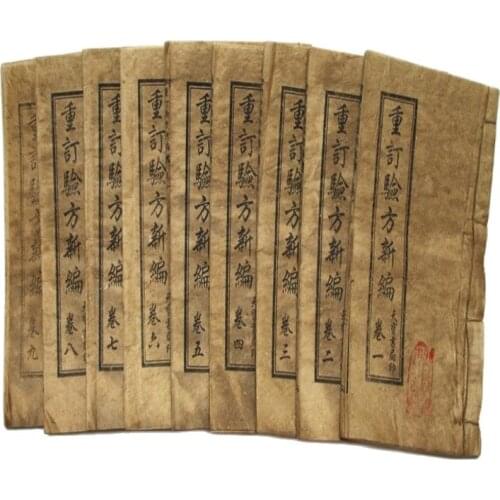 重訂驗方新編 卷一
重訂驗方新編 卷二
重訂驗方新編 卷三
重訂驗方新編 卷四
重訂驗方新編 卷五
重訂驗方新編 卷六
重訂驗方新編 卷七
重訂驗方新編 卷八
重訂驗方新編 卷九